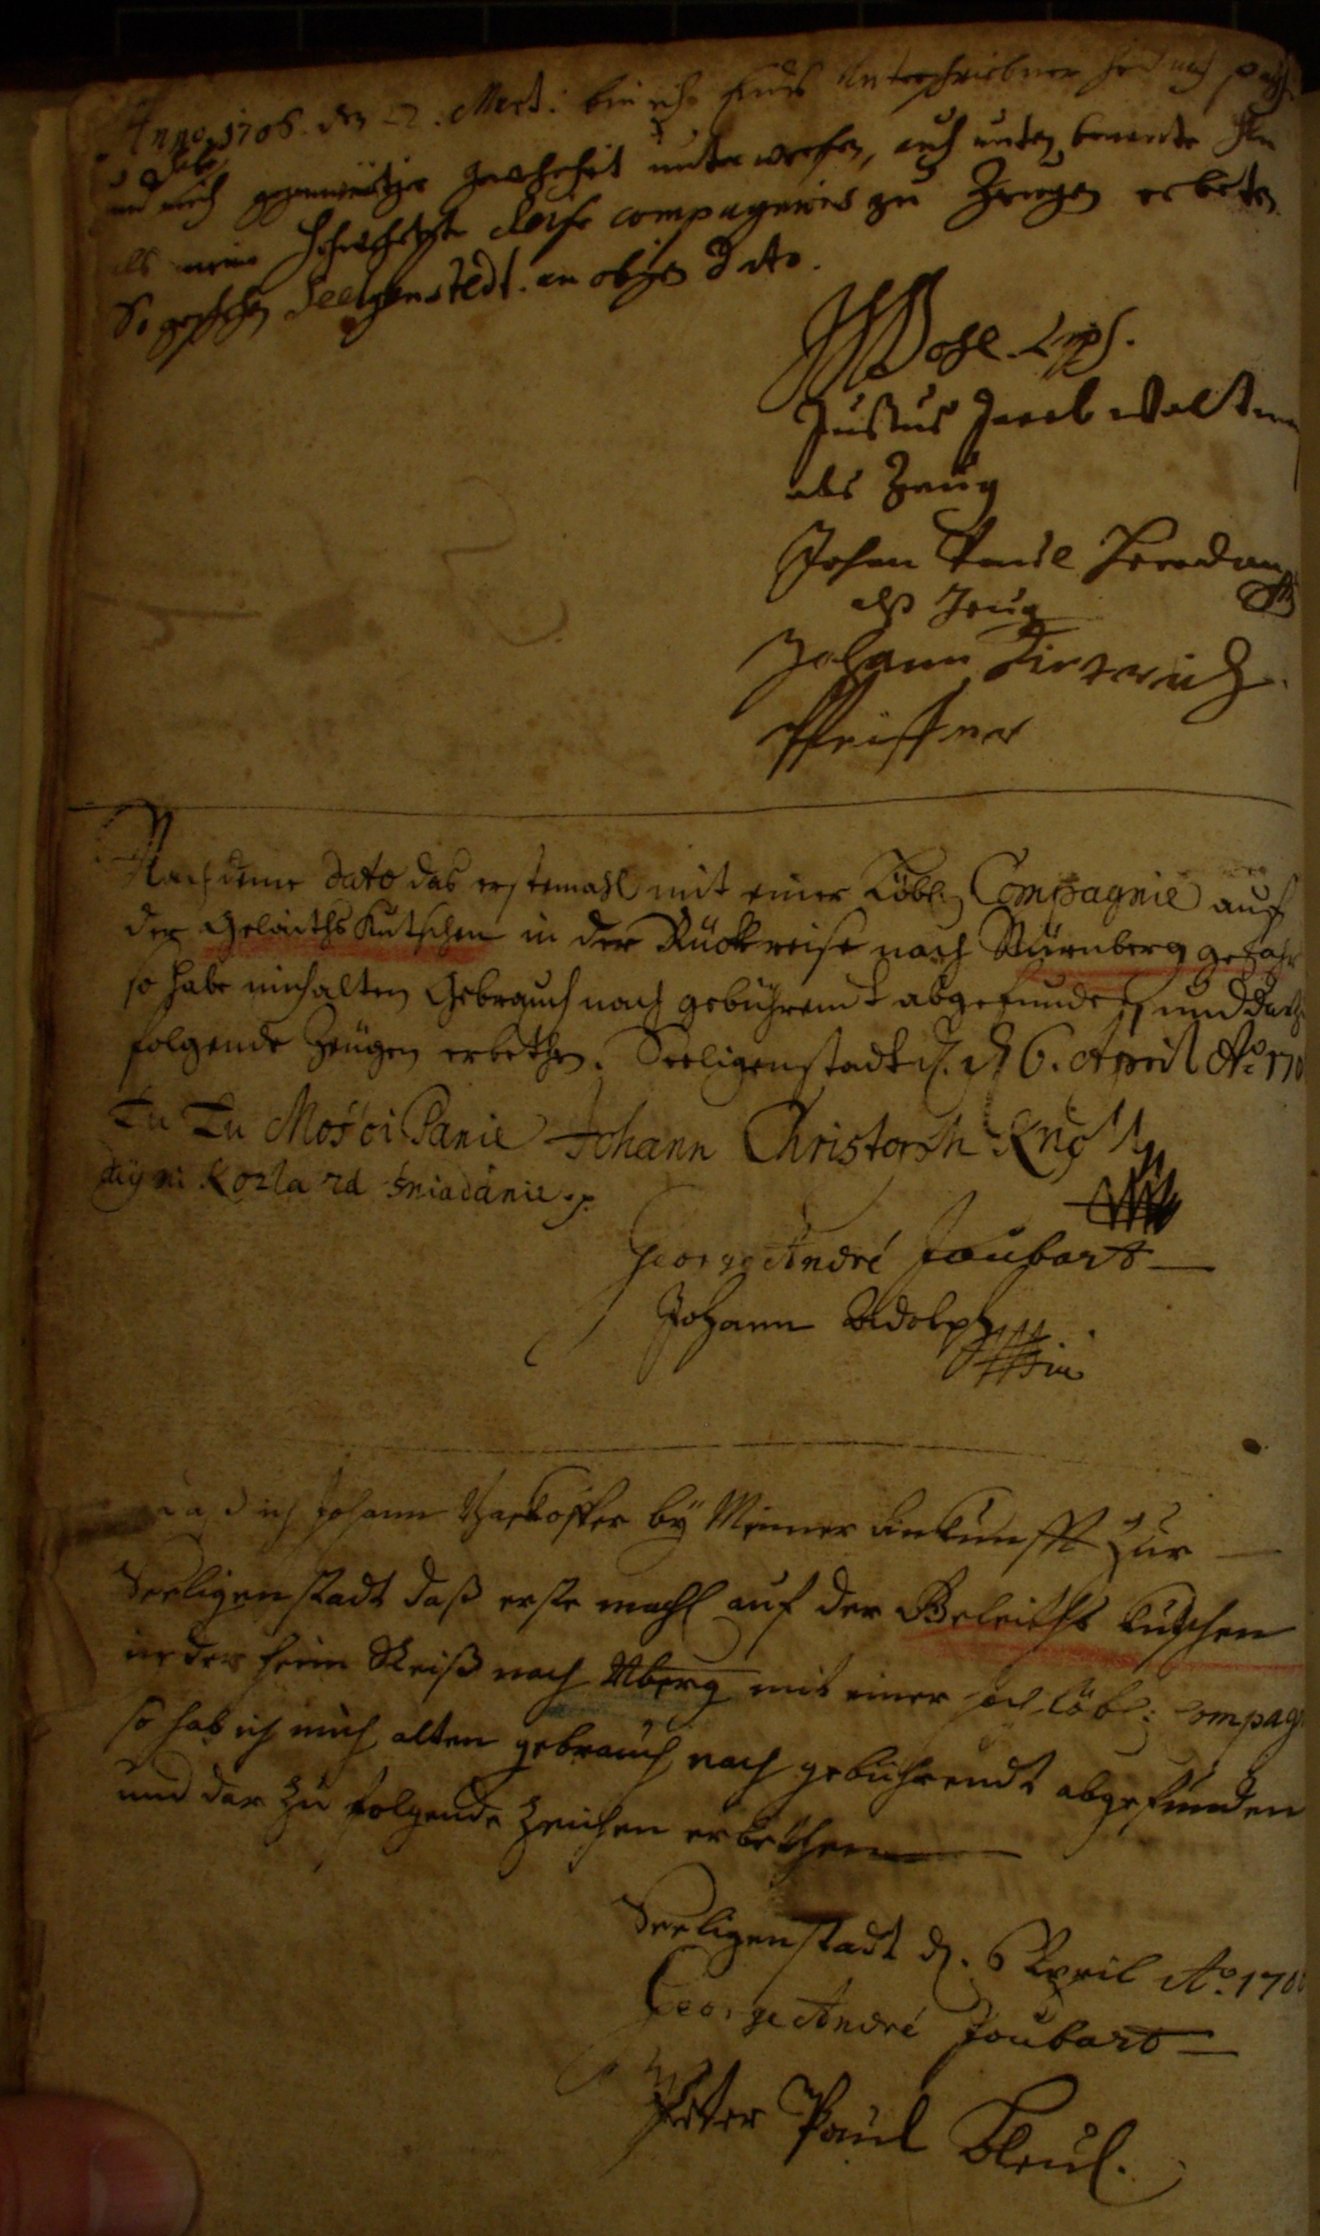 Anno 1706. den 2. Mert: bin ich Ends Unterschriebner
und mich gegenwärtiger gewohnheit unterworfen, auch unten benante
als meine compagnons zu Zeugen erbeten
So geschehen Seelgenstedt. an obigen dato.
Justus Jacob Waltm
als Zeüg
Johan Paul
als Zeug
Johann Dieterich
Pfeiffer
Nachdeme dato das erstemahl mit einer Löbl. Compagnie auf
der Gelaiths Kutschen in der Rückreise nach Nürnberg gefahr
so habe mich alten Gebrauch nach gebührendt abgefunden, und
folgende Zeugen erbethen. Seeligenstadt d. 6. April Ao. 170
Tu Tu Mości Panie Johann Christoph
Kozła za śniadánie.
George André Joubart
Johann Adolph
Johann by Meiner ankunfft Zur
Seeligenstadt daß erste mahl auf der Geleiths kutschen
in der heim Reiß nach Nberg mit einer löbl: Compag
so hab ich mich alten gebrauch nach gebührendt abgefunden
und dar zu folgende Zeichen erbethen
Seeligenstadt d. 6 April Ao. 170
George André Joubart
Peter Paul